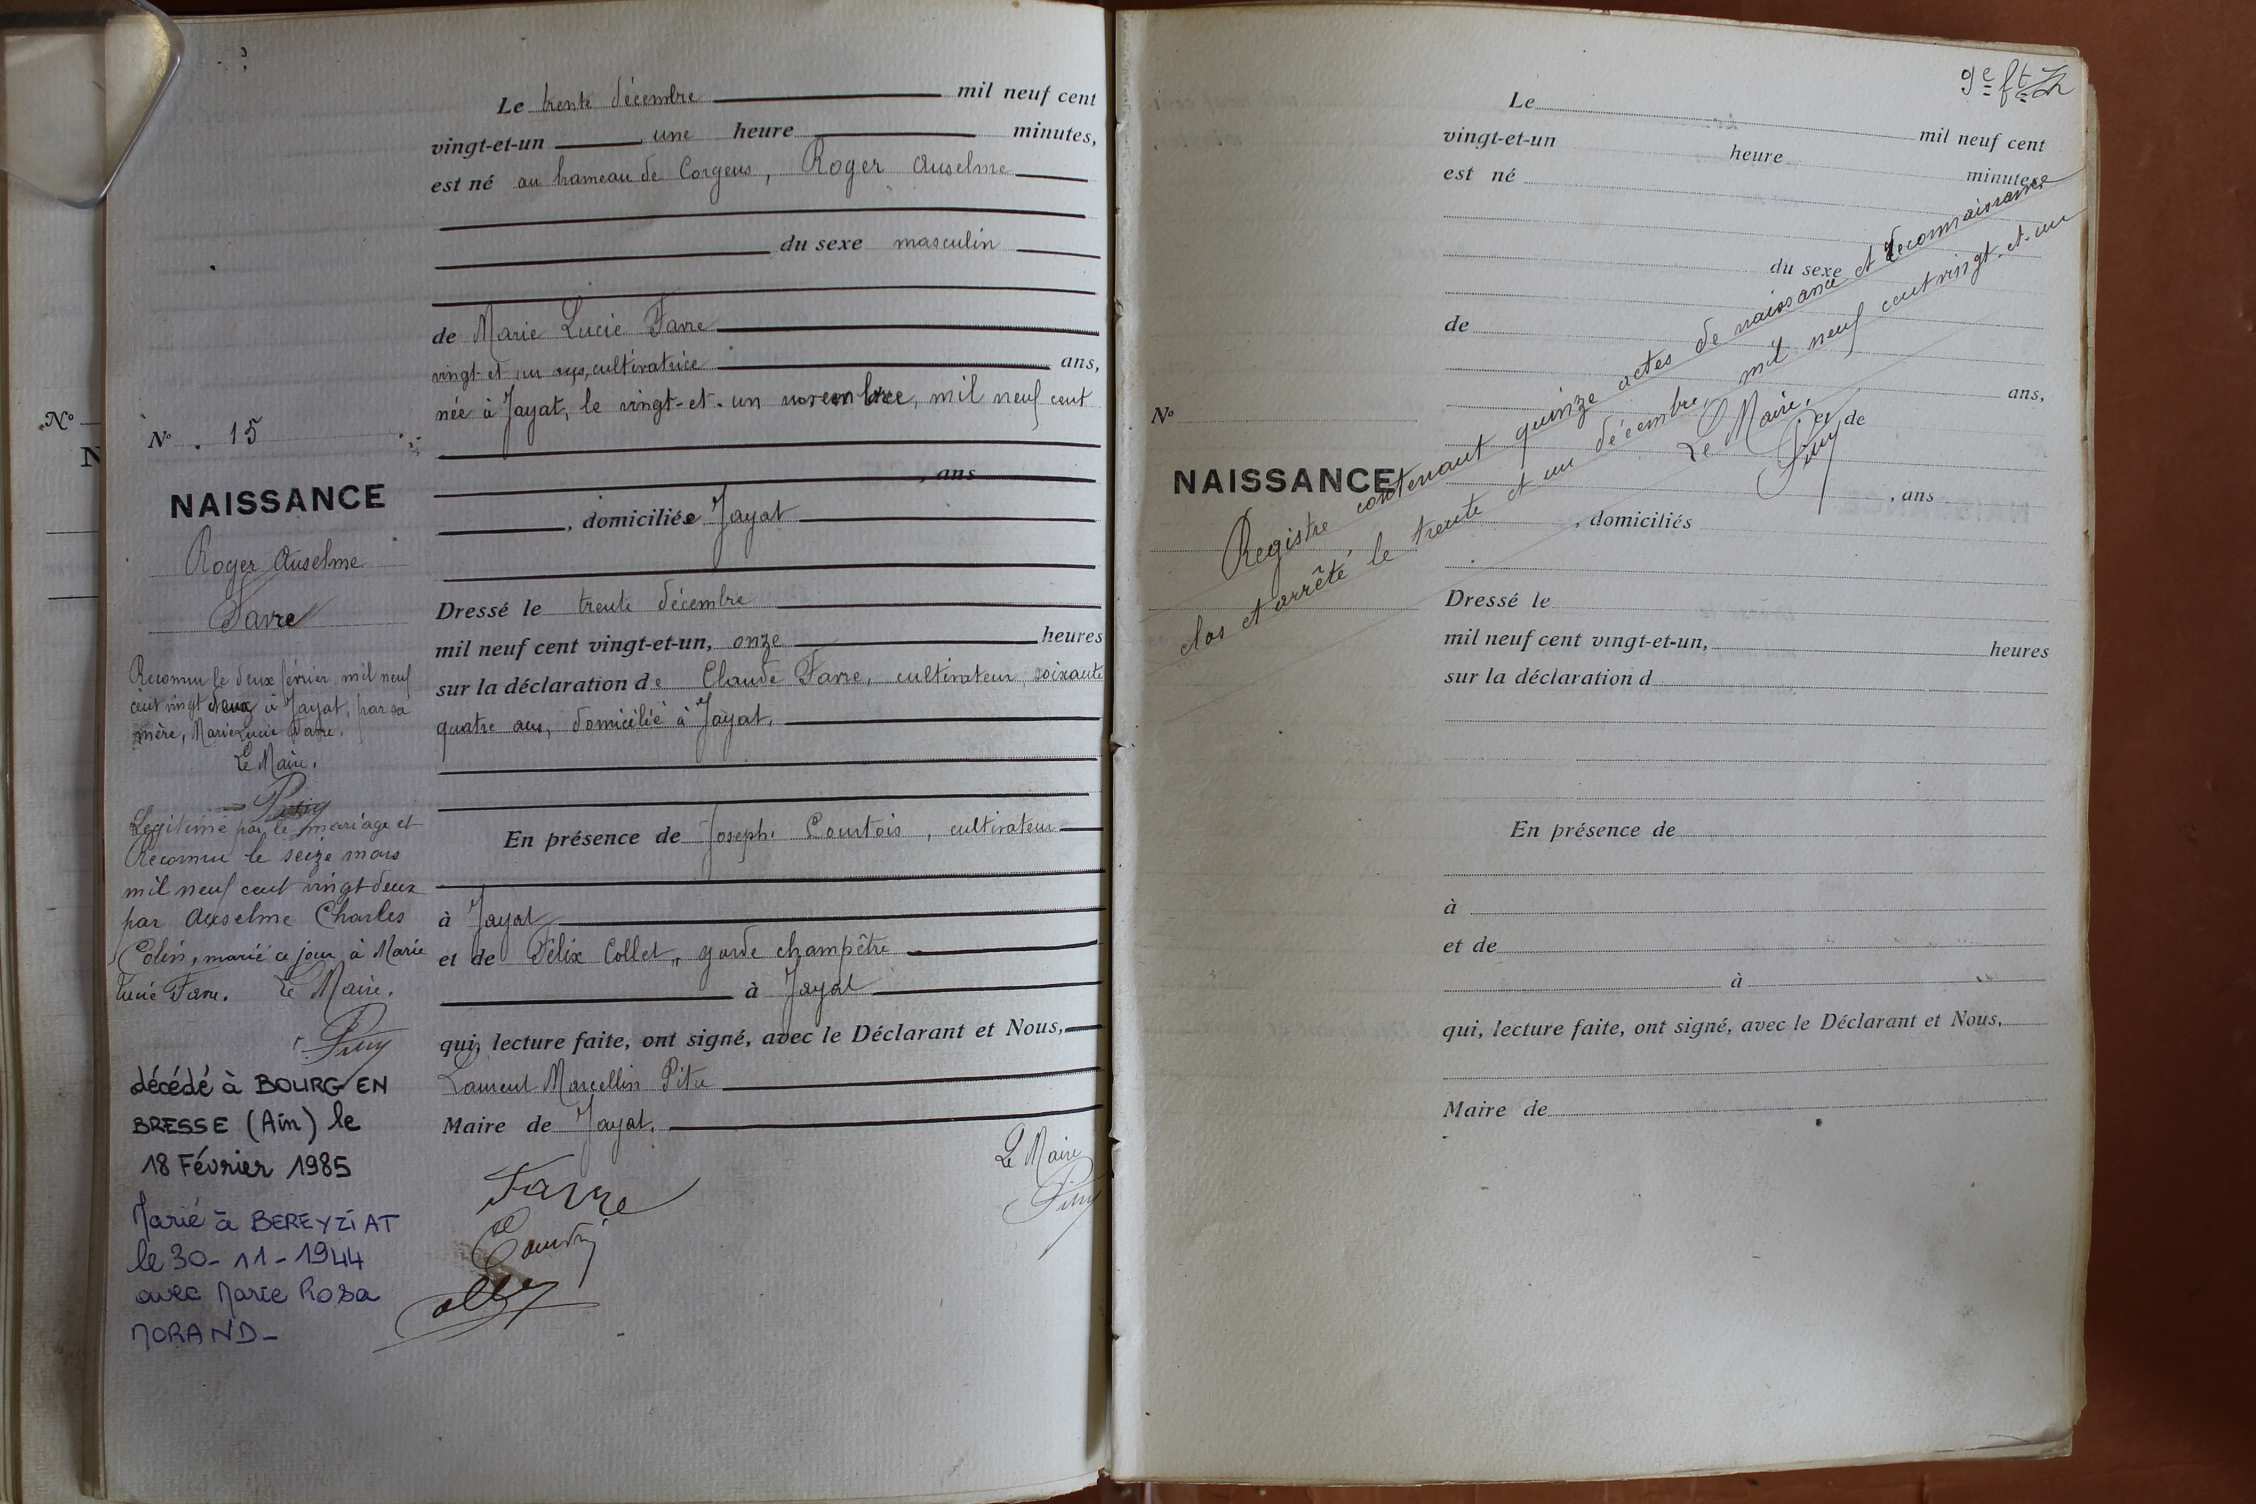 N°
N
N° 15
NAISSANCE
Roger Anselme
Favre
Reconnu le deux février mil neuf
cent vingt deux à Jayat, par sa
mère, Marie Lucie Favre.
Le Maire.
Légitimé par le mariage et
Reconnu le seize mars
mil neuf cent vingt deux
par Anselme Charles
Colin, marié ce jour à Marie
Lucie Favre. Le Maire.
décédé à BOURG EN
BRESSE (Ain) le
18 Février 1985
Marié à BEREYZIAT
le 30-11-1944
avec Marie Rosa
MORAND-
Le trente décembre mil neuf cent
vingt-et-un une heure minutes,
est né au hameau de Corgeus, Roger Anselme
du sexe masculin
de Marie Lucie Favre
vingt et un ans, cultivatrice ans,
née à Jayat, le vingt-et-un novembre, mil neuf cent
, ans
, domiciliée Jayat
Dressé le trente décembre
mil neuf cent vingt-et-un, onze heures
sur la déclaration de Claude Favre, cultivateur, soixante
quatre ans, domicilié à Jayat.
En présence de Joseph Courtois, cultivateur
à Jayat
et de Félix Collet, garde champêtre
à Jayat
qui, lecture faite, ont signé, avec le Déclarant et Nous,
Laurent Marcellin
Maire de Jayat.
Le Maire
Favre
9e ft
Le mil neuf cent
vingt-et-un heure minutes
est né
du sexe
de
ans,
N°
et de
NAISSANCE
, ans
, domiciliés
Registre contenant quinze actes de naissance et Reconnaissance
clos et arrêté le trente et un décembre, mil neuf cent vingt-et-un
Le Maire,
Dressé le
mil neuf cent vingt-et-un, heures
sur la déclaration d
En présence de
à
et de
à
qui, lecture faite, ont signé, avec le Déclarant et Nous,
Maire de